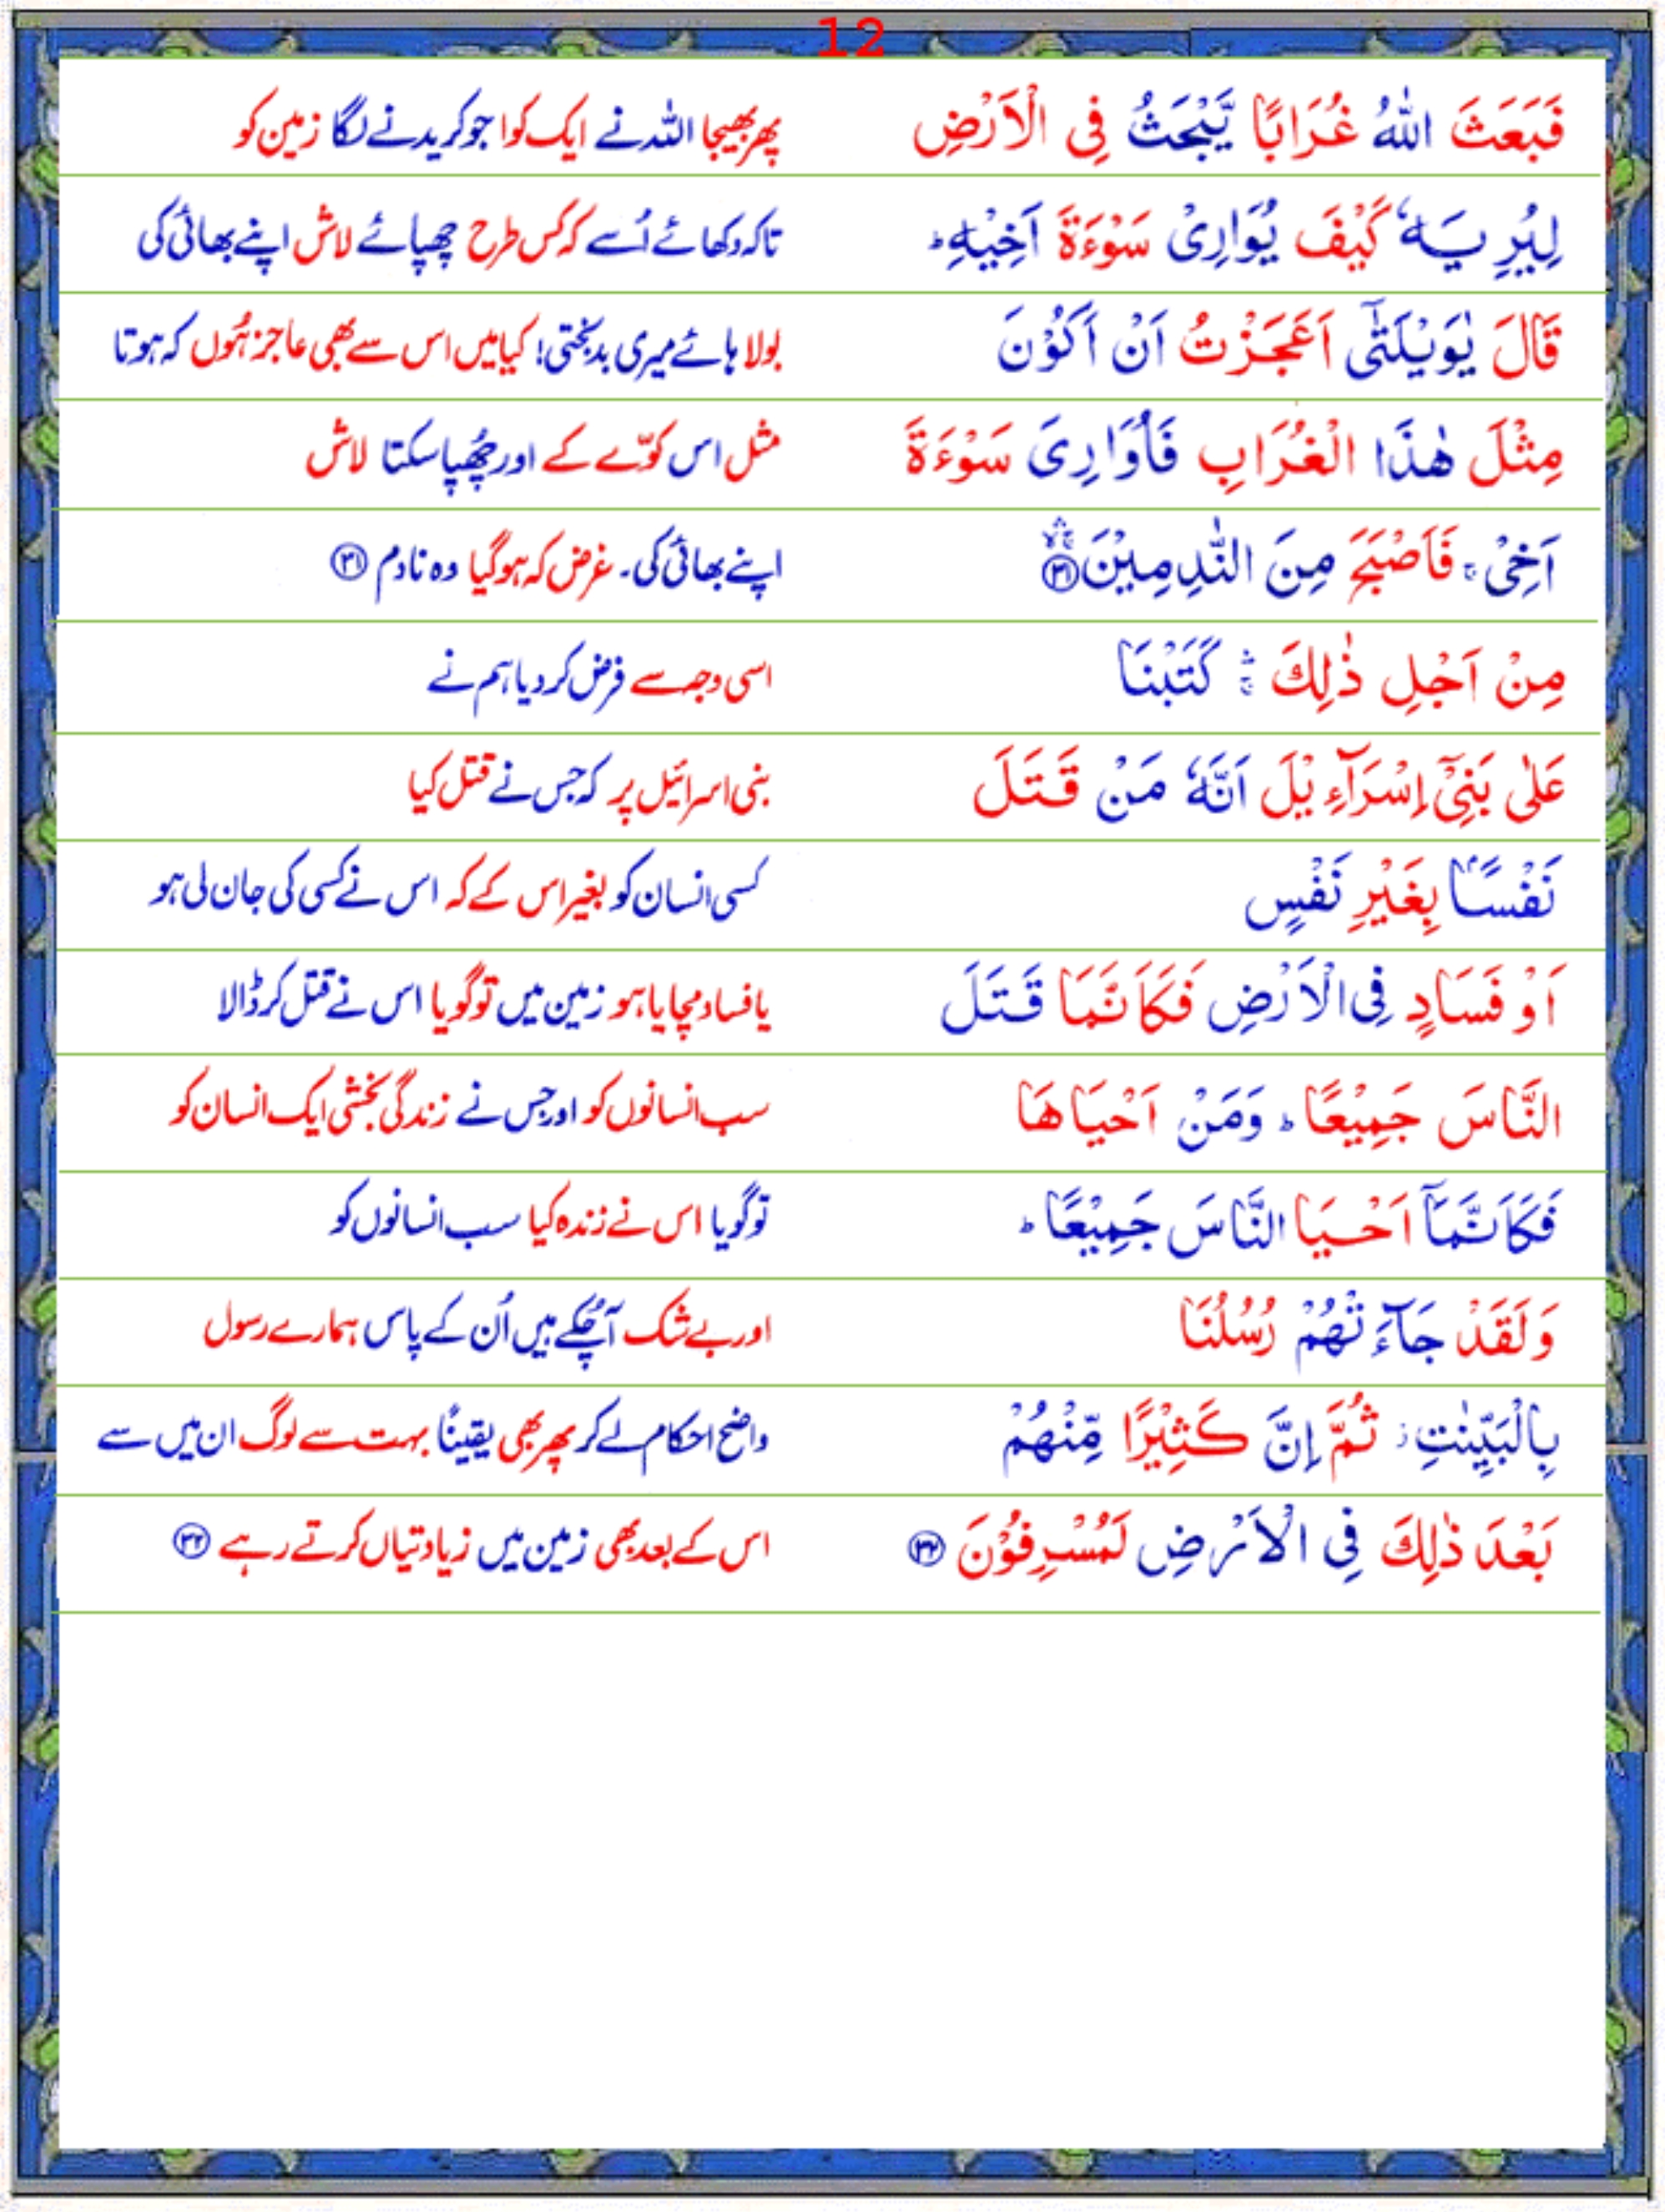 12
فَبَعَثَ اللّٰهُ غُرَابًا يَّبْحَثُ فِى الْاَرْضِ پھر بھیجا اللہ نے ایک کوا جو کریدنے لگا زمین کو
لِيُرِيَهٗ كَيْفَ يُوَارِىْ سَوْءَةَ اَخِيْهِ ؕ تاکہ دکھائے اُسے کہ کس طرح چھپائے لاش اپنے بھائی کی
قَالَ يٰوَيْلَتٰٓى اَعَجَزْتُ اَنْ اَكُوْنَ بولا ہائے میری بدبختی! کیا میں اس سے بھی عاجز ہُوں کہ ہوتا
مِثْلَ هٰذَا الْغُرَابِ فَاُوَارِىَ سَوْءَةَ مثل اس کوّے کے اور چھُپا سکتا لاش
اَخِىْ ۚ فَاَصْبَحَ مِنَ النّٰدِمِيْنَ ۛۚۙ ۝۳۱ اپنے بھائی کی۔ غرض کہ ہوگیا وہ نادم ۝۳۱
مِنْ اَجْلِ ذٰلِكَ ۛۚ كَتَبْنَا اسی وجہ سے فرض کر دیا ہم نے
عَلٰى بَنِىْٓ اِسْرَآءِيْلَ اَنَّهٗ مَنْ قَتَلَ بنی اسرائیل پر کہ جس نے قتل کیا
نَفْسًۢا بِغَيْرِ نَفْسٍ کسی انسان کو بغیر اس کے کہ اس نے کسی کی جان لی ہو
اَوْ فَسَادٍ فِى الْاَرْضِ فَكَاَنَّمَا قَتَلَ یا فساد مچایا ہو زمین میں تو گویا اس نے قتل کر ڈالا
النَّاسَ جَمِيْعًا ؕ وَمَنْ اَحْيَاهَا سب انسانوں کو اور جس نے زندگی بخشی ایک انسان کو
فَكَاَنَّمَآ اَحْيَا النَّاسَ جَمِيْعًا ؕ تو گویا اس نے زندہ کیا سب انسانوں کو
وَلَقَدْ جَآءَتْهُمْ رُسُلُنَا اور بے شک آچُکے ہیں اُن کے پاس ہمارے رسول
بِالْبَيِّنٰتِ ز ثُمَّ اِنَّ كَثِيْرًا مِّنْهُمْ واضح احکام لے کر پھر بھی یقیناً بہت سے لوگ ان میں سے
بَعْدَ ذٰلِكَ فِى الْاَرْضِ لَمُسْرِفُوْنَ ۝۳۲ اس کے بعد بھی زمین میں زیادتیاں کرتے رہے ۝۳۲